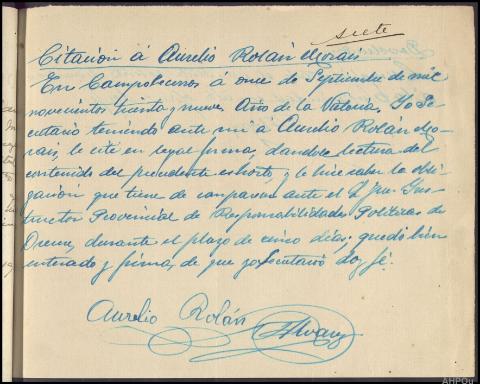 siete
Citación á Aurelio Rolán Morais
En Campobecerros á once de Septiembre de mil
novecientos treinta y nueve. Año de la Victoria. Yo Se-
cretario teniendo ante mi á Aurelio Rolán Mo-
rais, le cité en legal forma, dandole lectura del
contenido del precedente exhorto, y le hice saber la obli-
gación que tiene de comparecer ante el Sr. Juez Ins-
tructor Provincial de Responsabilidades Politicas de
Orense, durante el plazo de cinco días; quedó bien
enterado y firma, de que yo Secretario doy fé.
Aurelio Rolán
AHPOu